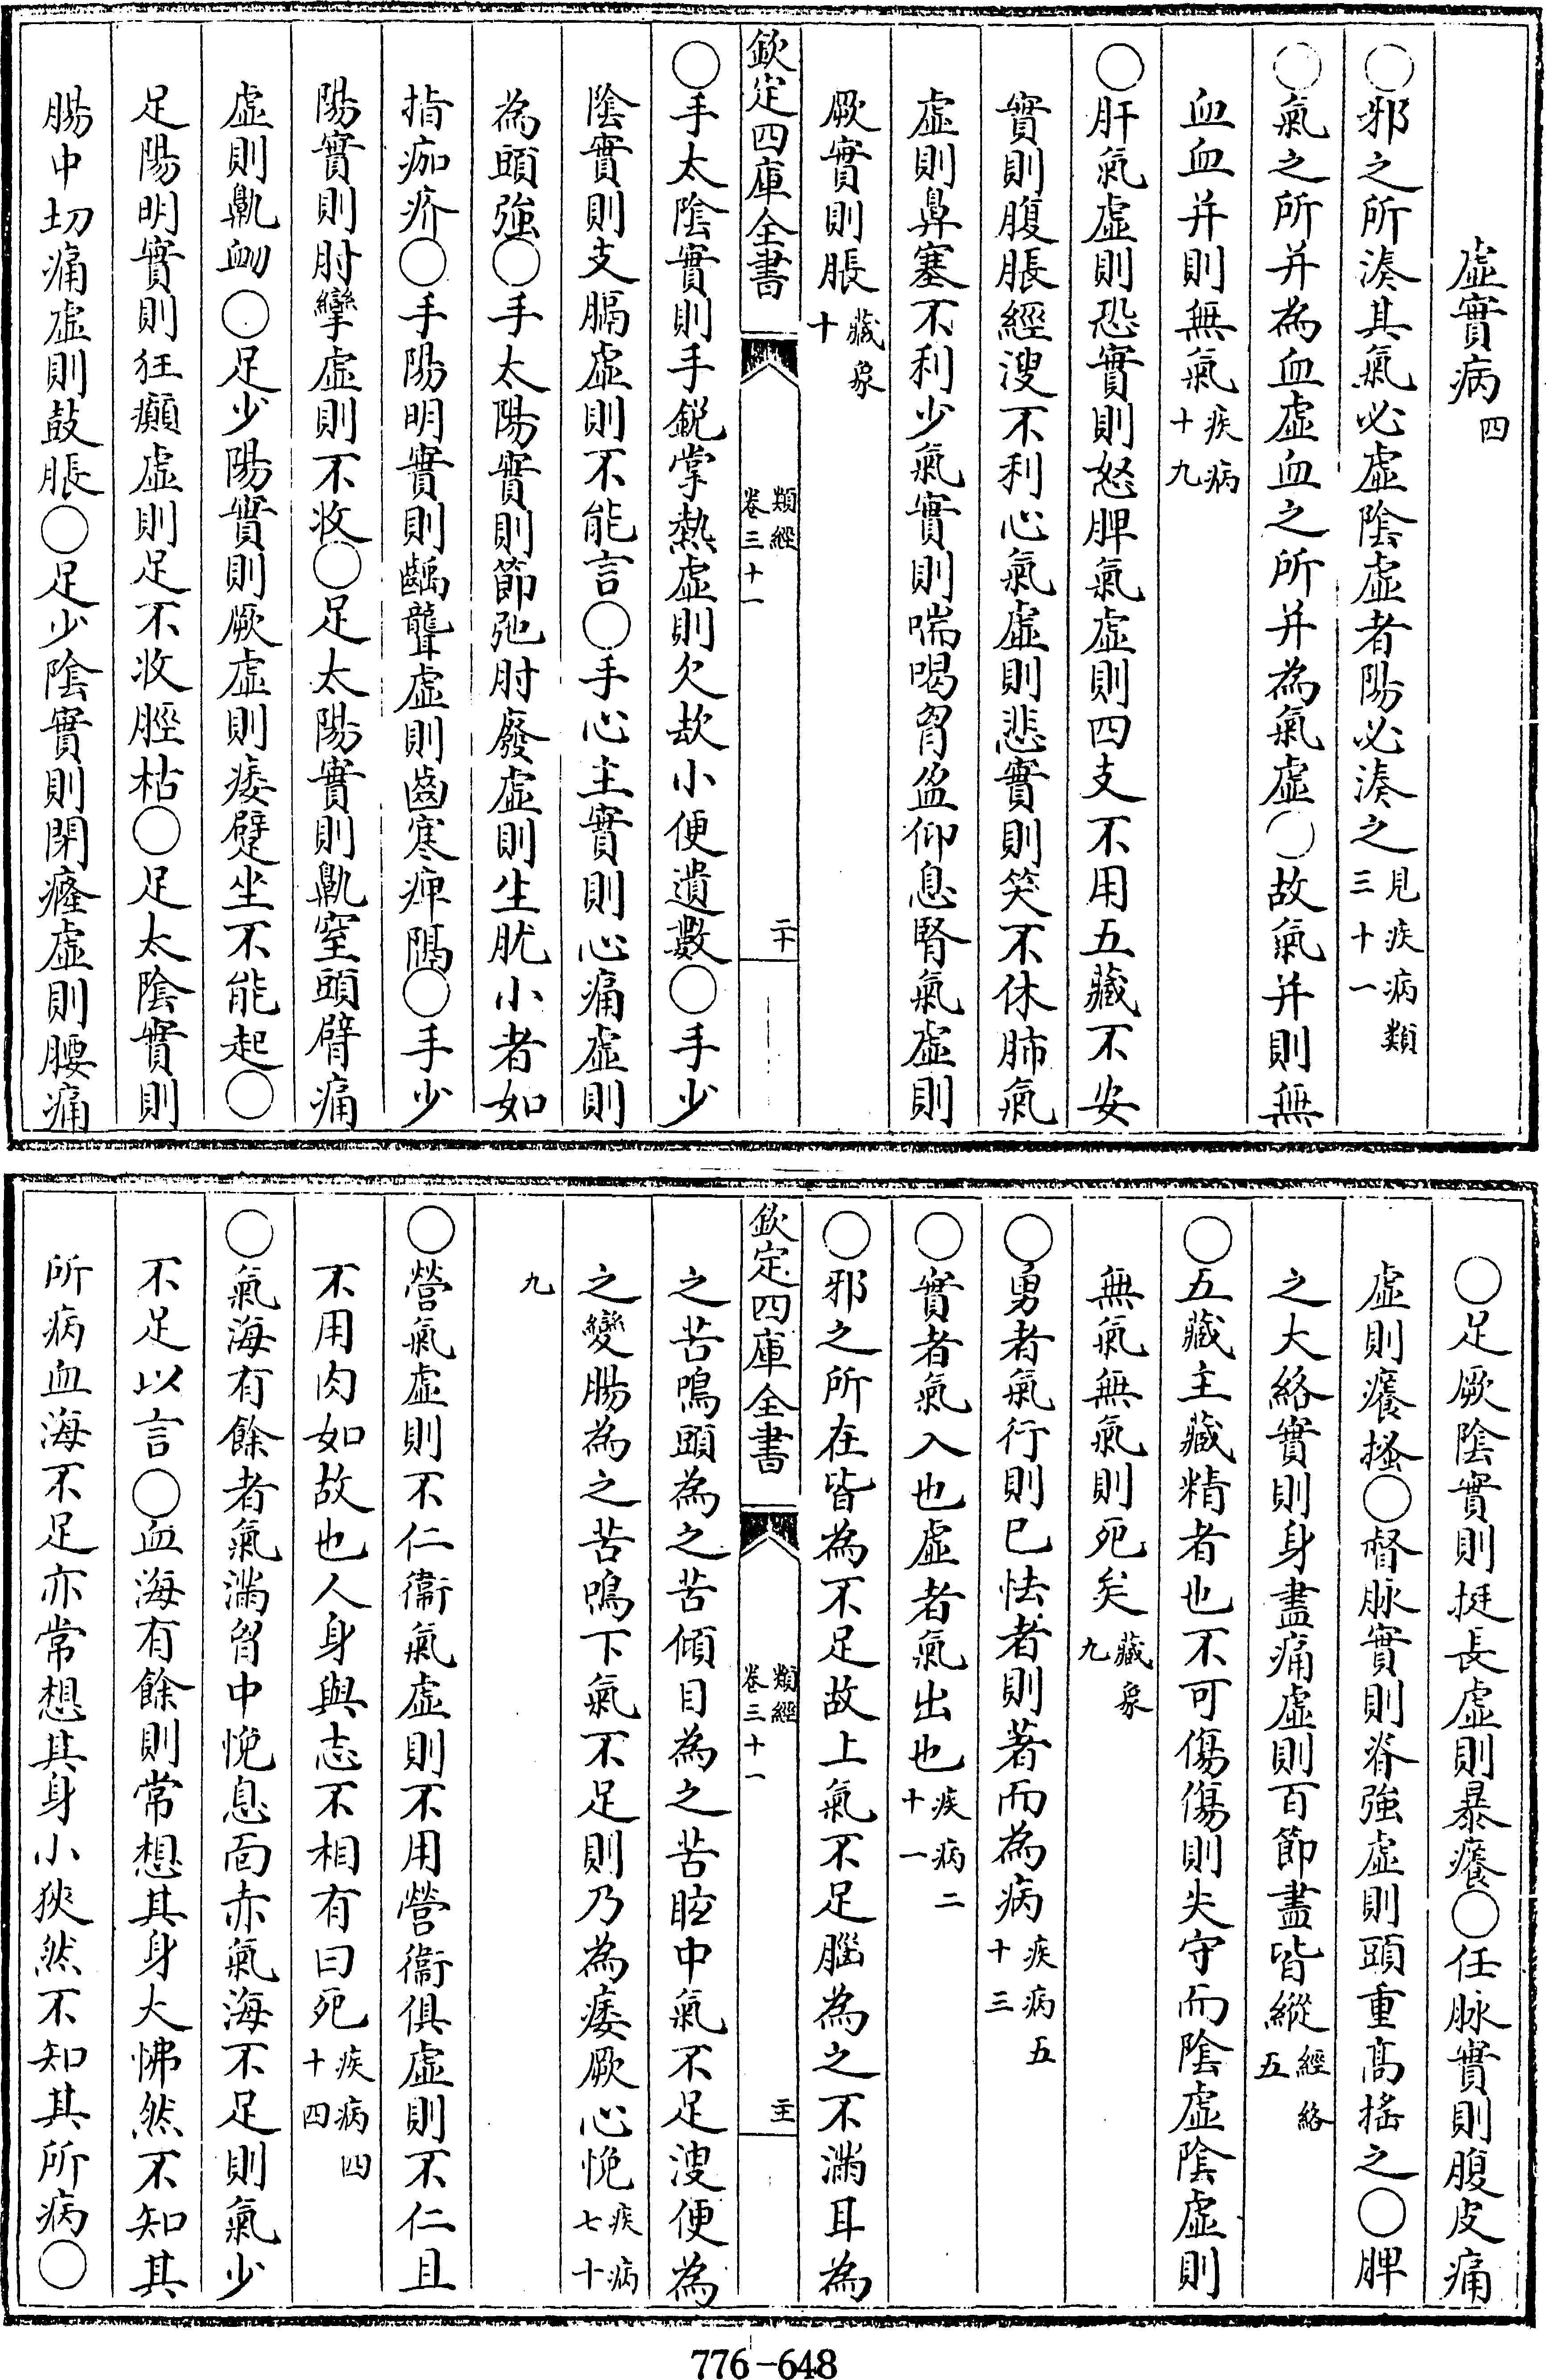 虛實病四
○邪之所湊其氣必虛陰虛者陽必湊之見疾病類三十一
○氣之所并為血虛血之所并為氣虛○故氣并則無
血血并則無氣疾病十九
○肝氣虛則恐實則怒脾氣虛則四支不用五藏不安
實則腹脹經溲不利心氣虛則悲實則笑不休肺氣
虛則鼻塞不利少氣實則喘喝胷盈仰息腎氣虛則
厥實則脹藏象十
欽定四庫全書 類經卷三十一 二十
○手太陰實則手銳掌熱虛則欠㰦小便遺數○手少
陰實則支膈虛則不能言○手心主實則心痛虛則
為頭強○手太陽實則節弛肘廢虛則生肬小者如
指痂疥○手陽明實則齲聾虛則齒寒痺隔○手少
陽實則肘攣虛則不收○足太陽實則鼽窒頭臂痛
虛則鼽衂○足少陽實則厥虛則痿躄坐不能起○
足陽明實則狂癲虛則足不收脛枯○足太陰實則
腸中切痛虛則鼓脹○足少陰實則閉癃虛則腰痛
○足厥陰實則挺長虛則暴癢○任脉實則腹皮痛
虛則癢搔○督脉實則脊強虛則頭重高搖之○脾
之大絡實則身盡痛虛則百節盡皆縱經絡五
○五藏主藏精者也不可傷傷則失守而陰虛陰虛則
無氣無氣則死矣藏象九
○勇者氣行則已怯者則著而為病疾病五十三
○實者氣入也虛者氣出也疾病二十一
○邪之所在皆為不足故上氣不足腦為之不滿耳為
欽定四庫全書 類經卷三十一 二十一
之苦鳴頭為之苦傾目為之苦眩中氣不足溲便為
之變腸為之苦鳴下氣不足則乃為痿厥心悗疾病七十
九
○營氣虛則不仁衞氣虛則不用營衞俱虛則不仁且
不用肉如故也人身與志不相有曰死疾病四十四
○氣海有餘者氣滿胷中悗息面赤氣海不足則氣少
不足以言○血海有餘則常想其身大怫然不知其
所病血海不足亦常想其身小狹然不知其所病○
776-648